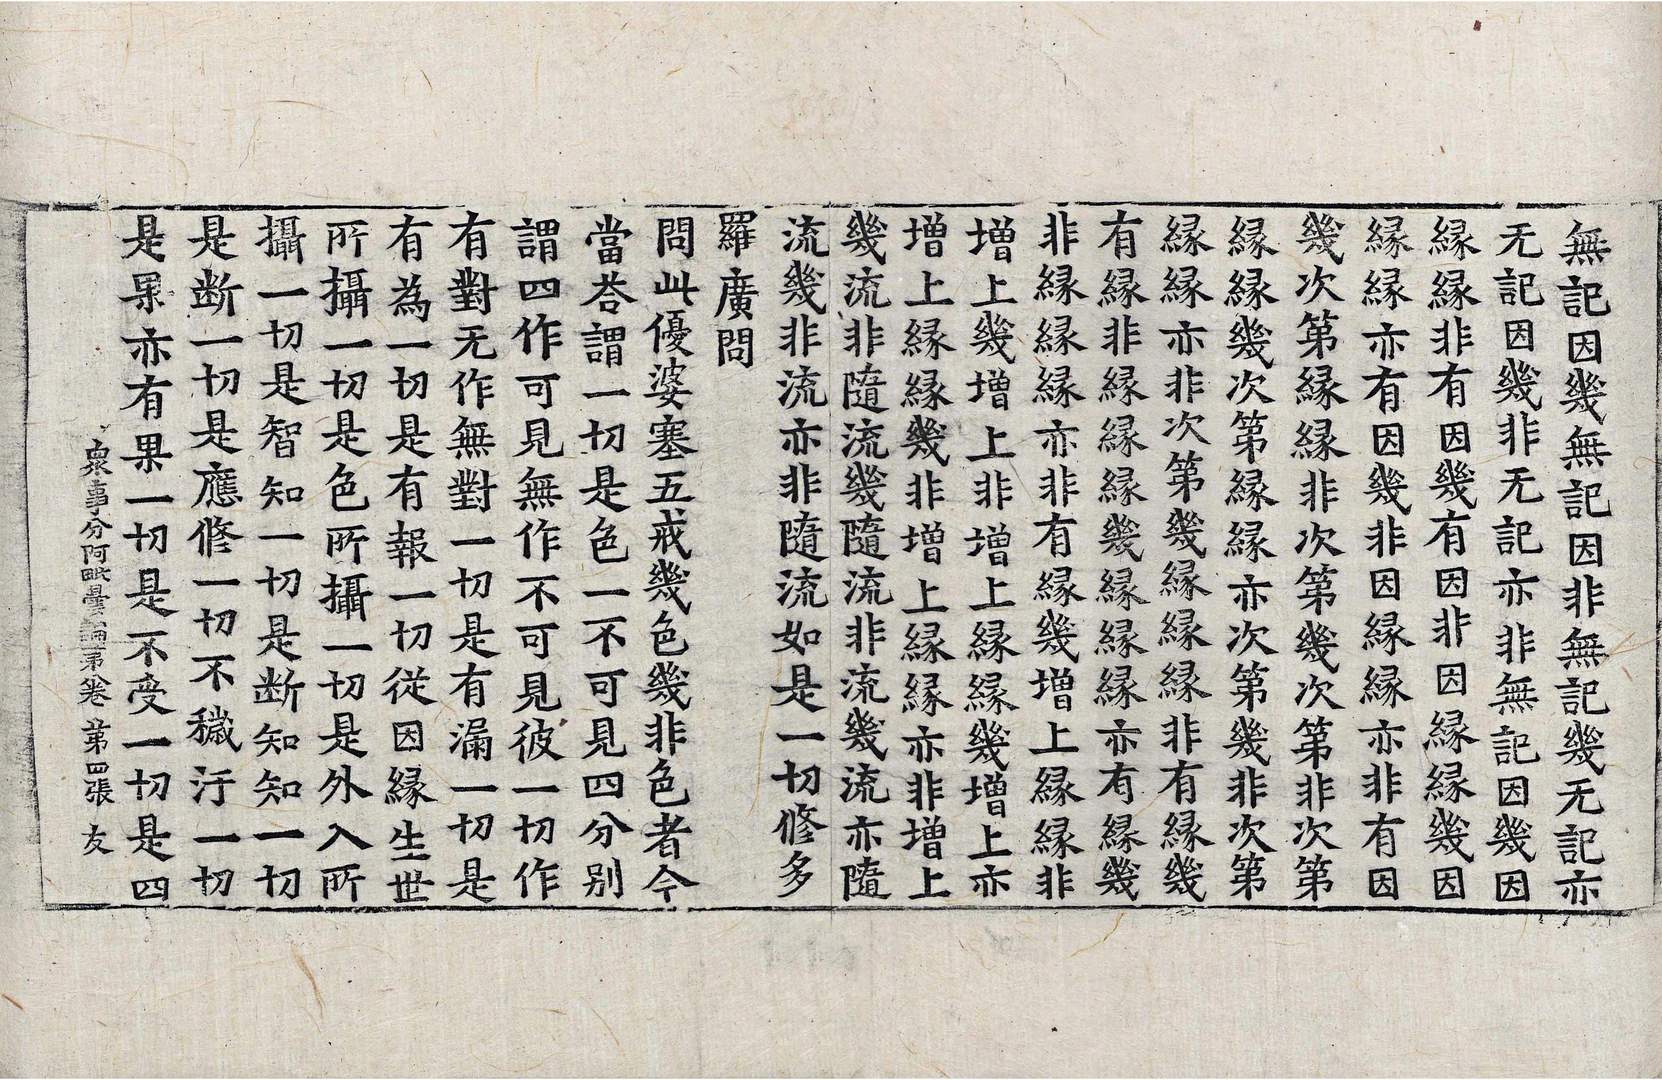 無記因幾無記因非無記幾无記亦
无記因幾非无記亦非無記因幾因
縁縁非有因幾有因非因縁縁幾因
縁縁亦有因幾非因縁縁亦非有因
幾次第縁縁非次第幾次第非次第
縁縁幾次第縁縁亦次第幾非次第
縁縁亦非次第幾縁縁縁非有縁幾
有縁非縁縁縁幾縁縁縁亦有縁幾
非縁縁縁亦非有縁幾增上縁縁非
增上幾增上非增上縁縁幾增上亦
增上縁縁幾非增上縁縁亦非增上
幾流非隨流幾隨流非流幾流亦隨
流幾非流亦非隨流如是一切修多
羅廣問
問此優婆塞五戒幾色幾非色者今
當荅謂一切是色一不可見四分別
謂四作可見無作不可見彼一切作
有對无作無對一切是有漏一切是
有為一切是有報一切從因縁生世
所攝一切是色所攝一切是外入所
攝一切是智知一切是断知知一切
是断一切是應修一切不穢汙一切
是果亦有果一切是不受一切是四
衆事分阿毗曇論第卷 苐四張 友